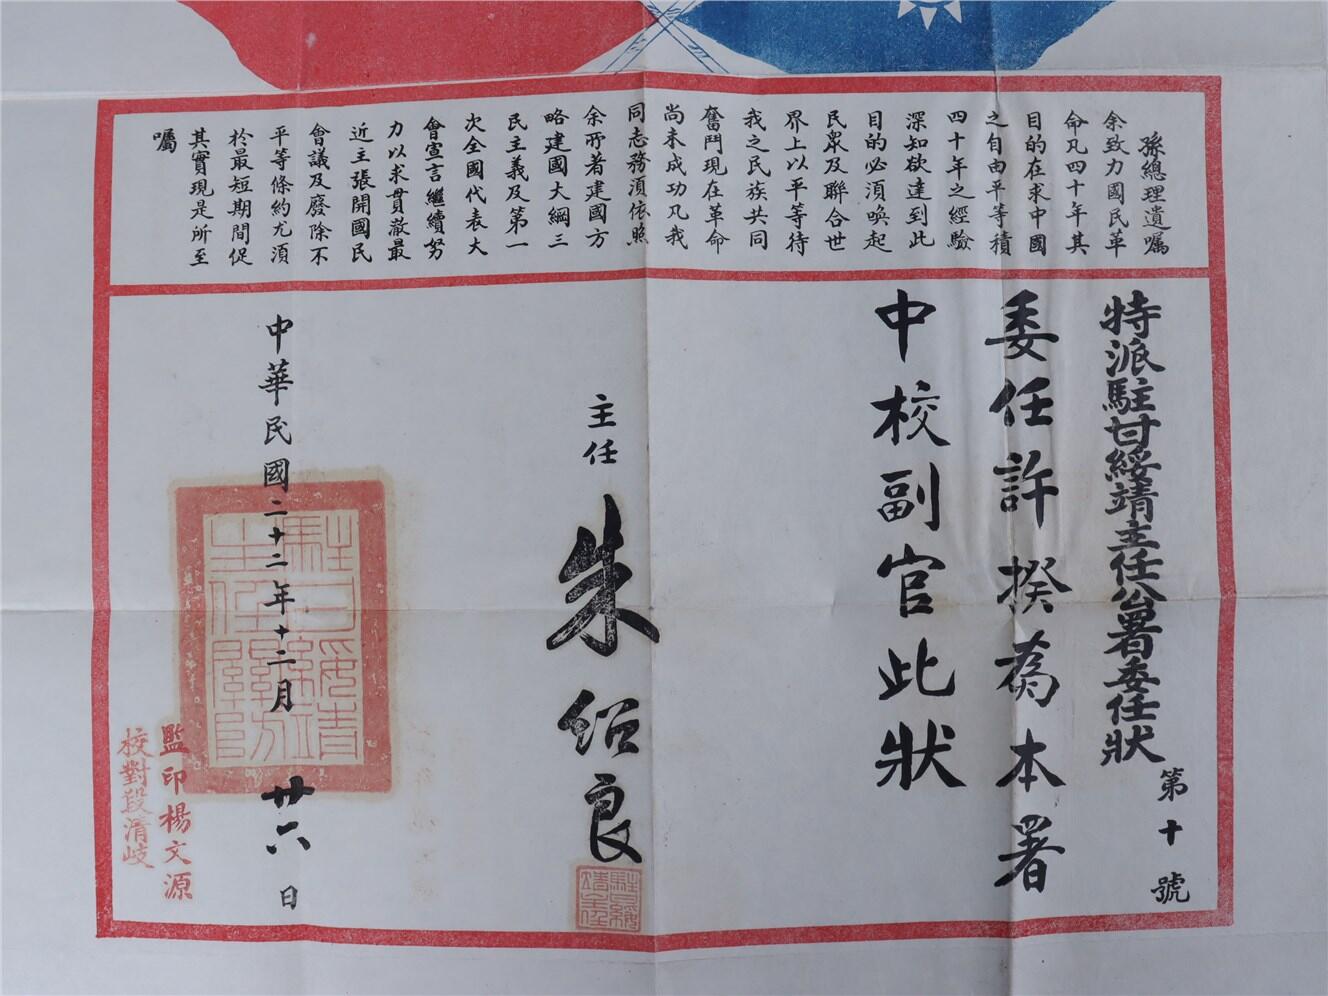 孫總理遺囑
余致力國民革
命凡四十年其
目的在求中國
之自由平等積
四十年之經驗
深知欲達到此
目的必須喚起
民眾及聯合世
界上以平等待
我之民族共同
奮鬥現在革命
尚未成功凡我
同志務須依照
余所著建國方
略建國大綱三
民主義及第一
次全國代表大
會宣言繼續努
力以求貫澈最
近主張開國民
會議及廢除不
平等條約尤須
於最短期間促
其實現是所至
囑
特派駐甘綏靖主任公署委任狀
第十號
委任許揆為本署
中校副官此狀
主任
朱紹良
駐甘綏靖主任
中華民國二十二年十二月廿六日
駐甘綏靖主任關防
監印楊文源
校對段清岐